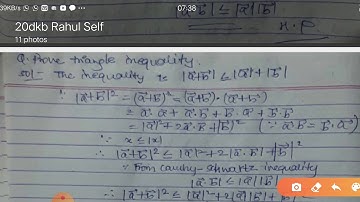 39KB/s 07:38
20dkb Rahul Self
11 photos
|a⃗·b⃗| ≤ |a⃗||b⃗|
H.P
Q. Prove triangle inequality.
Sol:- The inequality is |a⃗+b⃗| ≤ |a⃗|+|b⃗|
∵ |a⃗+b⃗|² = (a⃗+b⃗)² = (a⃗+b⃗)·(a⃗+b⃗)
= a⃗·a⃗ + a⃗·b⃗ + b⃗·a⃗ + b⃗·b⃗
= |a⃗|² + 2a⃗·b⃗ + |b⃗|² (∵ a⃗·b⃗ = b⃗·a⃗)
∵ x ≤ |x|
∴ |a⃗+b⃗|² ≤ |a⃗|² + 2|a⃗·b⃗| + |b⃗|²
∵ From cauchy-schwartz inequality
|a⃗·b⃗| ≤ |a⃗||b⃗|
∴ |a⃗+b⃗|² ≤ |a⃗|² + 2|a⃗||b⃗| +